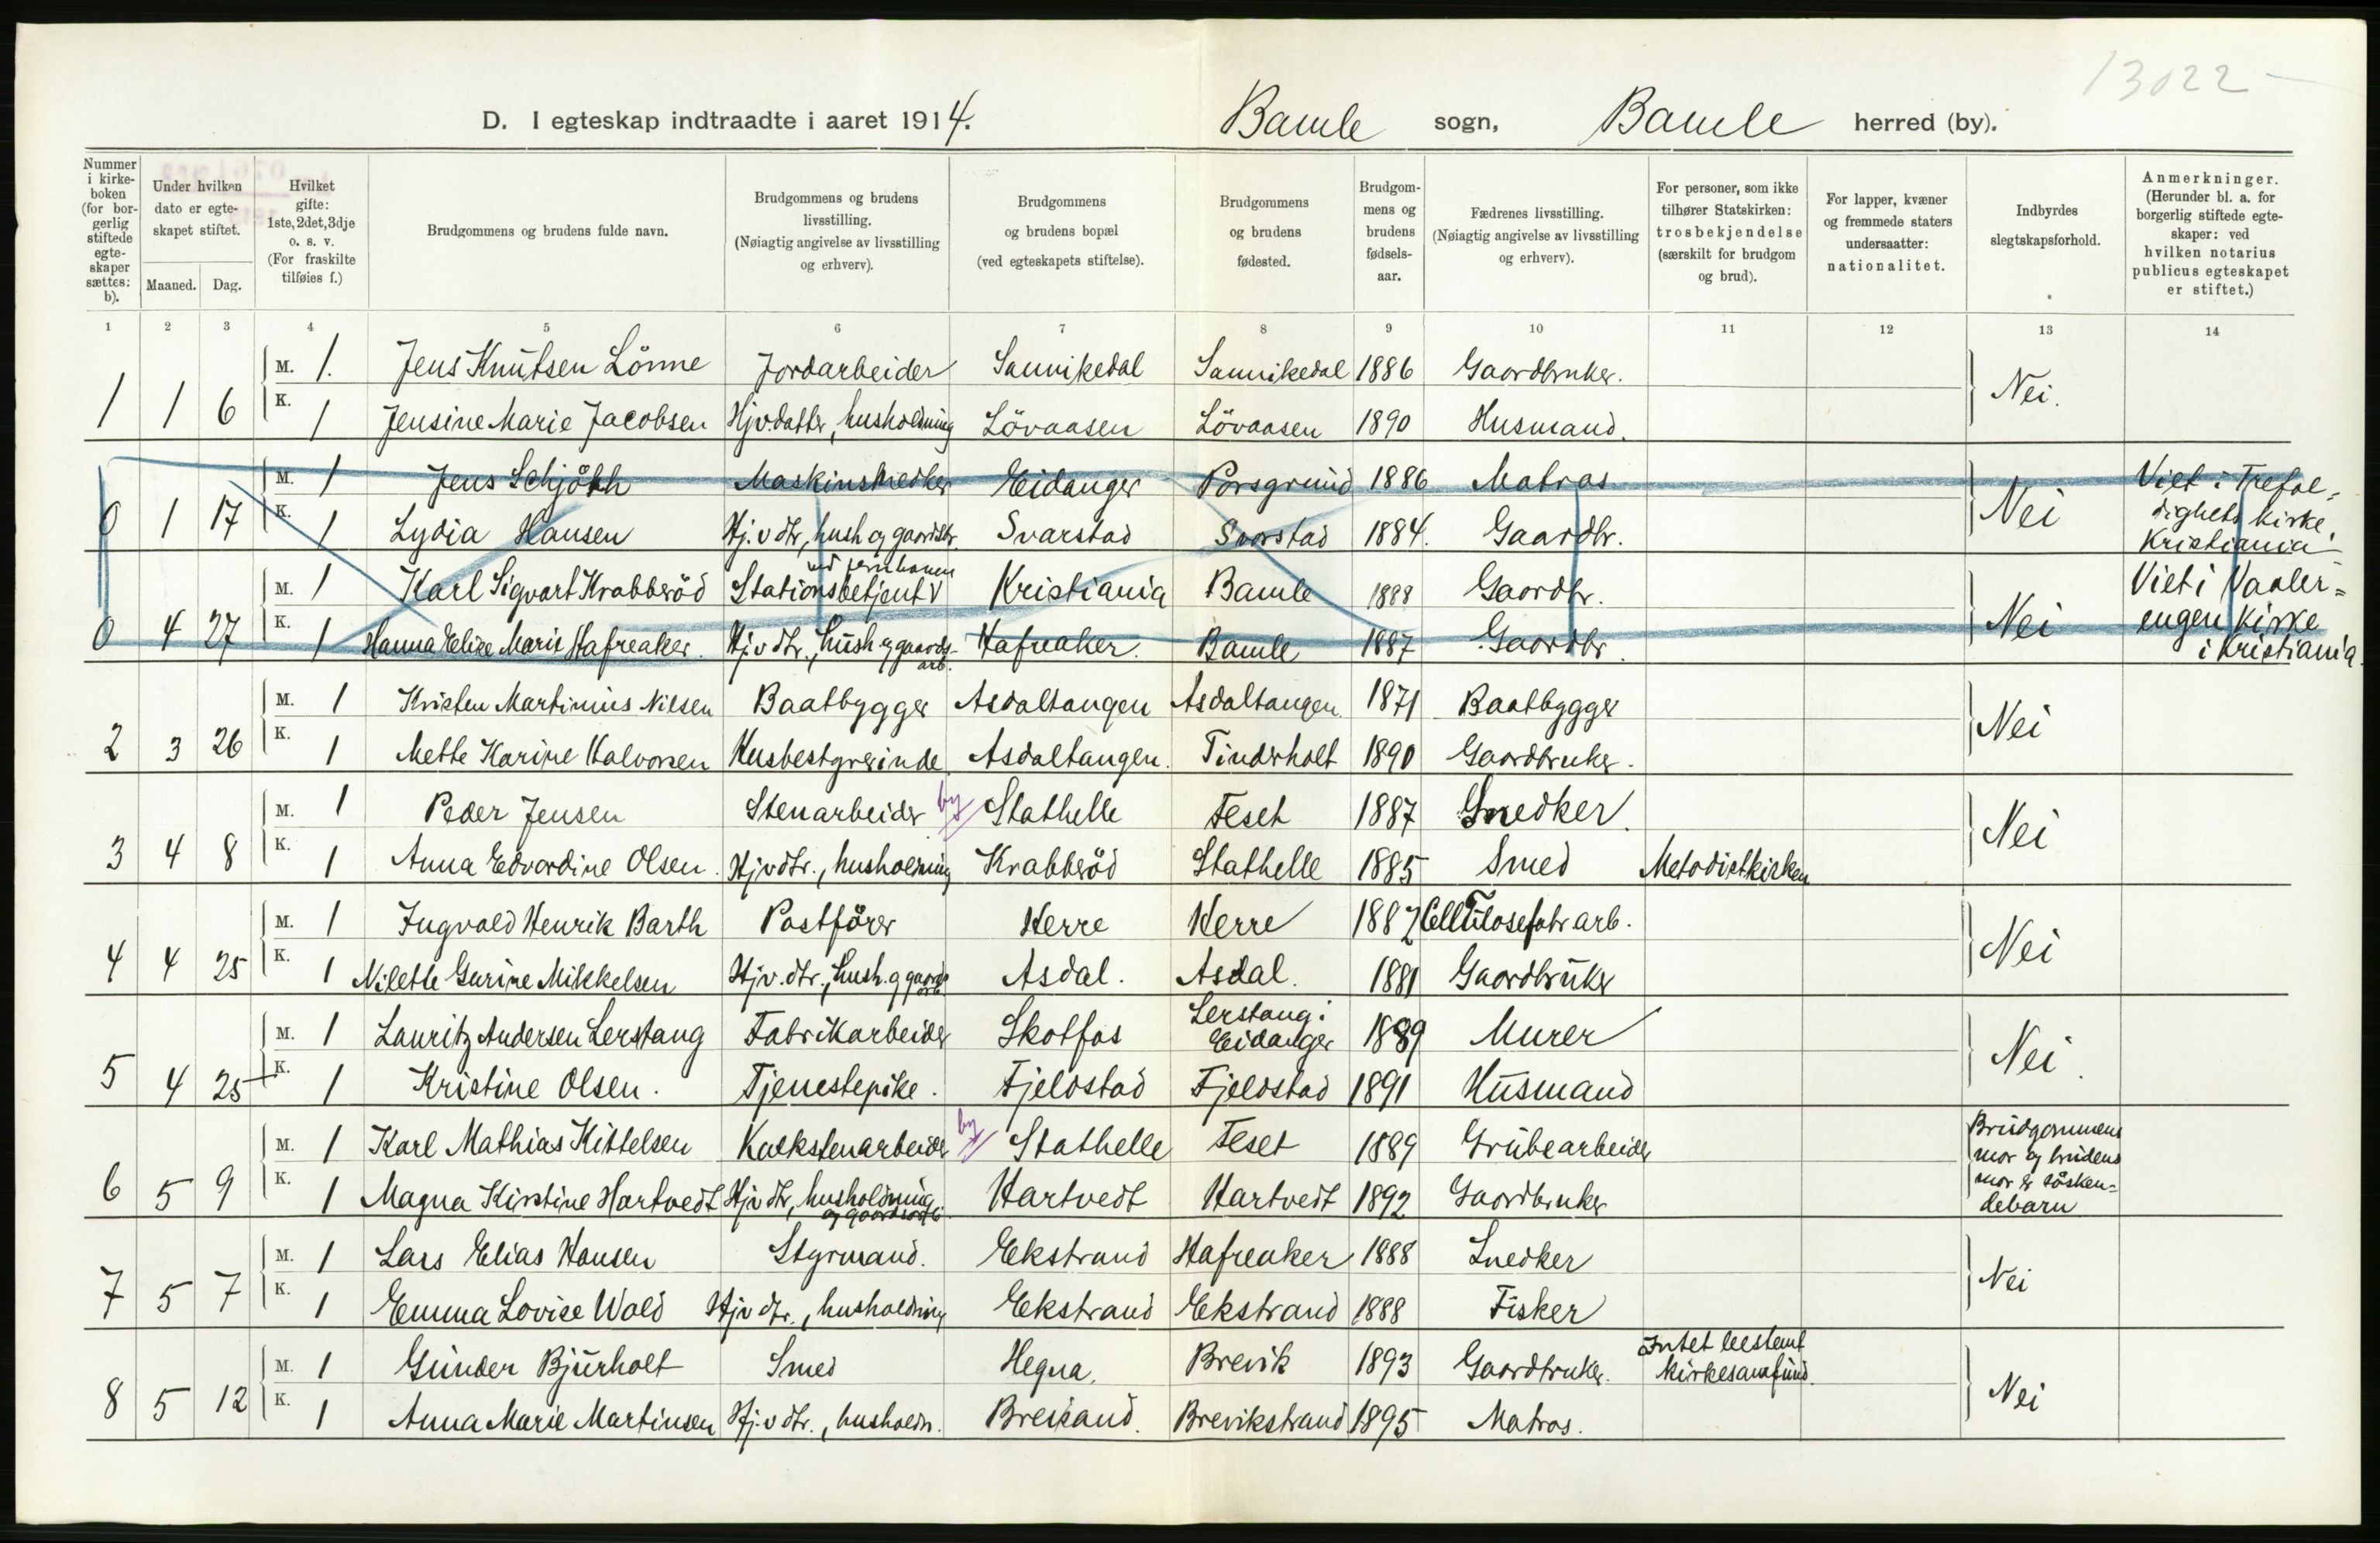 13022 -
D. I egteskap indtraadte i aaret 1914. Bamle sogn, Bamle herred (by).
Nummer i kirke-boken (for bor-gerlig stiftede egte-skaper sættes: b).
Under hvilken dato er egte-skapet stiftet.
Maaned. Dag.
Hvilket gifte: 1ste, 2det, 3dje o. s. v. (For fraskilte tilføies f.)
Brudgommens og brudens fulde navn.
Brudgommens og brudens livsstilling. (Nøiagtig angivelse av livsstilling og erhverv).
Brudgommens og brudens bopæl (ved egteskapets stiftelse).
Brudgommens og brudens fødested.
Brudgom-mens og brudens fødsels-aar.
Fædrenes livsstilling. (Nøiagtig angivelse av livsstilling og erhverv).
For personer, som ikke tilhører Statskirken: trosbekjendelse (særskilt for brudgom og brud).
For lapper, kvæner og fremmede staters undersaatter: nationalitet.
Indbyrdes slegtskapsforhold.
Anmerkninger. (Herunder bl. a. for borgerlig stiftede egte-skaper: ved hvilken notarius publicus egteskapet er stiftet.)
1 2 3 4 5 6 7 8 9 10 11 12 13 14
M. 1. Jens Knutsen Lönne Jordarbeider Sannikedal Sannikedal 1886 Gaardbruker.
1 1 6 K. 1 Jensine Marie Jacobsen Hjv.datter, husholdning Lövaasen Lövaasen 1890 Husmand. Nei.
M. 1 Jens Schjöth Maskinsnedker Eidanger Porsgrund 1886 Matros Viet i Trefol=
0 1 17 K. 1 Lydia Hansen Hj.v dtr, hush og gaardsbr. Svarstad Svarstad 1884. Gaardbr. Nei dighets kirke, Kristiania
M. 1 Karl Sigvart Krabberöd Stationsbetjent v ved jernbanen Kristiania Bamle 1888 Gaardbr. Viet i Vaaler=
0 4 27 K. 1 Hanna Elise Marie Hafreaker. Hjv dtr., hush og gaards-arb. Hafreaker. Bamle 1887 Gaardbr. Nei engen kirke i Kristiania.
M. 1 Kristen Martinius Nilsen Baatbygger Asdaltangen Asdaltangen 1871 Baatbygger
2 3 26 K. 1 Mette Karine Halvorsen Husbestyrerinde Asdaltangen. Tinderholt 1890 Gaardbruker. Nei
M. 1 Peder Jensen Stenarbeider by Stathelle Feset 1887 Snedker.
3 4 8 K. 1 Anna Edvardine Olsen. Hjvdtr., husholdning Krabberöd Stathelle 1885 Smed Metodistkirken Nei
M. 1 Ingvald Henrik Barth Postförer Herre Herre 1887 Cellulosefabr arb.
4 4 25 K. 1 Nilette Gurine Mikkelsen Hjv. dtr., hush. og gaardsarb. Asdal. Asdal. 1881 Gaardbruker Nei
M. 1 Lauritz Andersen Lerstang Fabrikarbeider Skotfos Lerstang i Eidanger 1889 Murer
5 4 25 K. 1 Kristine Olsen. Tjenestepike. Fjeldstad Fjeldstad 1891 Husmand Nei.
M. 1 Karl Mathias Kittelsen Kalkstenarbeider by Stathelle Feset 1889 Grubearbeider Brudgommens mor og brudens
6 5 9 K. 1 Magna Kirstine Hartvedt Hjv dtr, husholdning og gaardsarb. Hartvedt Hartvedt 1892 Gaardbruker mor er søsken= debarn
M. 1 Lars Elias Hansen Styrmand. Ekstrand Hafreaker 1888 Snedker
7 5 7 K. 1 Emma Lovise Wold Hjv dtr., husholdning Ekstrand Ekstrand 1888 Fisker Nei
M. 1 Gunder Bjurholt Smed Hegna. Brevik 1893 Gaardbruker. Intet bestemt kirkesamfund.
8 5 12 K. 1 Anna Marie Martinsen Hj.v dtr., husholdn. Breisand. Brevikstrand 1895 Matros. Nei